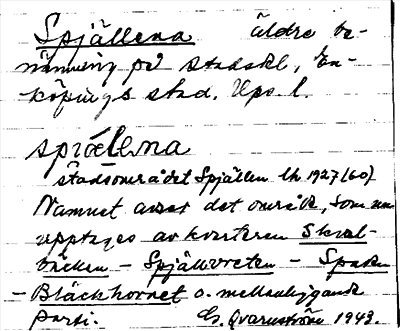 Spjällena äldre be-
nämning på stadsdel, En-
köpings stad. Upps. l.
spjællena
Stadsområdet Spjällen lh 1927 (60)
Namnet avser det område, som nu
upptages av kvarteren Skval-
bäcken - Spjällvreten - Spaken
- Bläckhornet o. mellanliggande
parti. G. Qvarnström 1943.